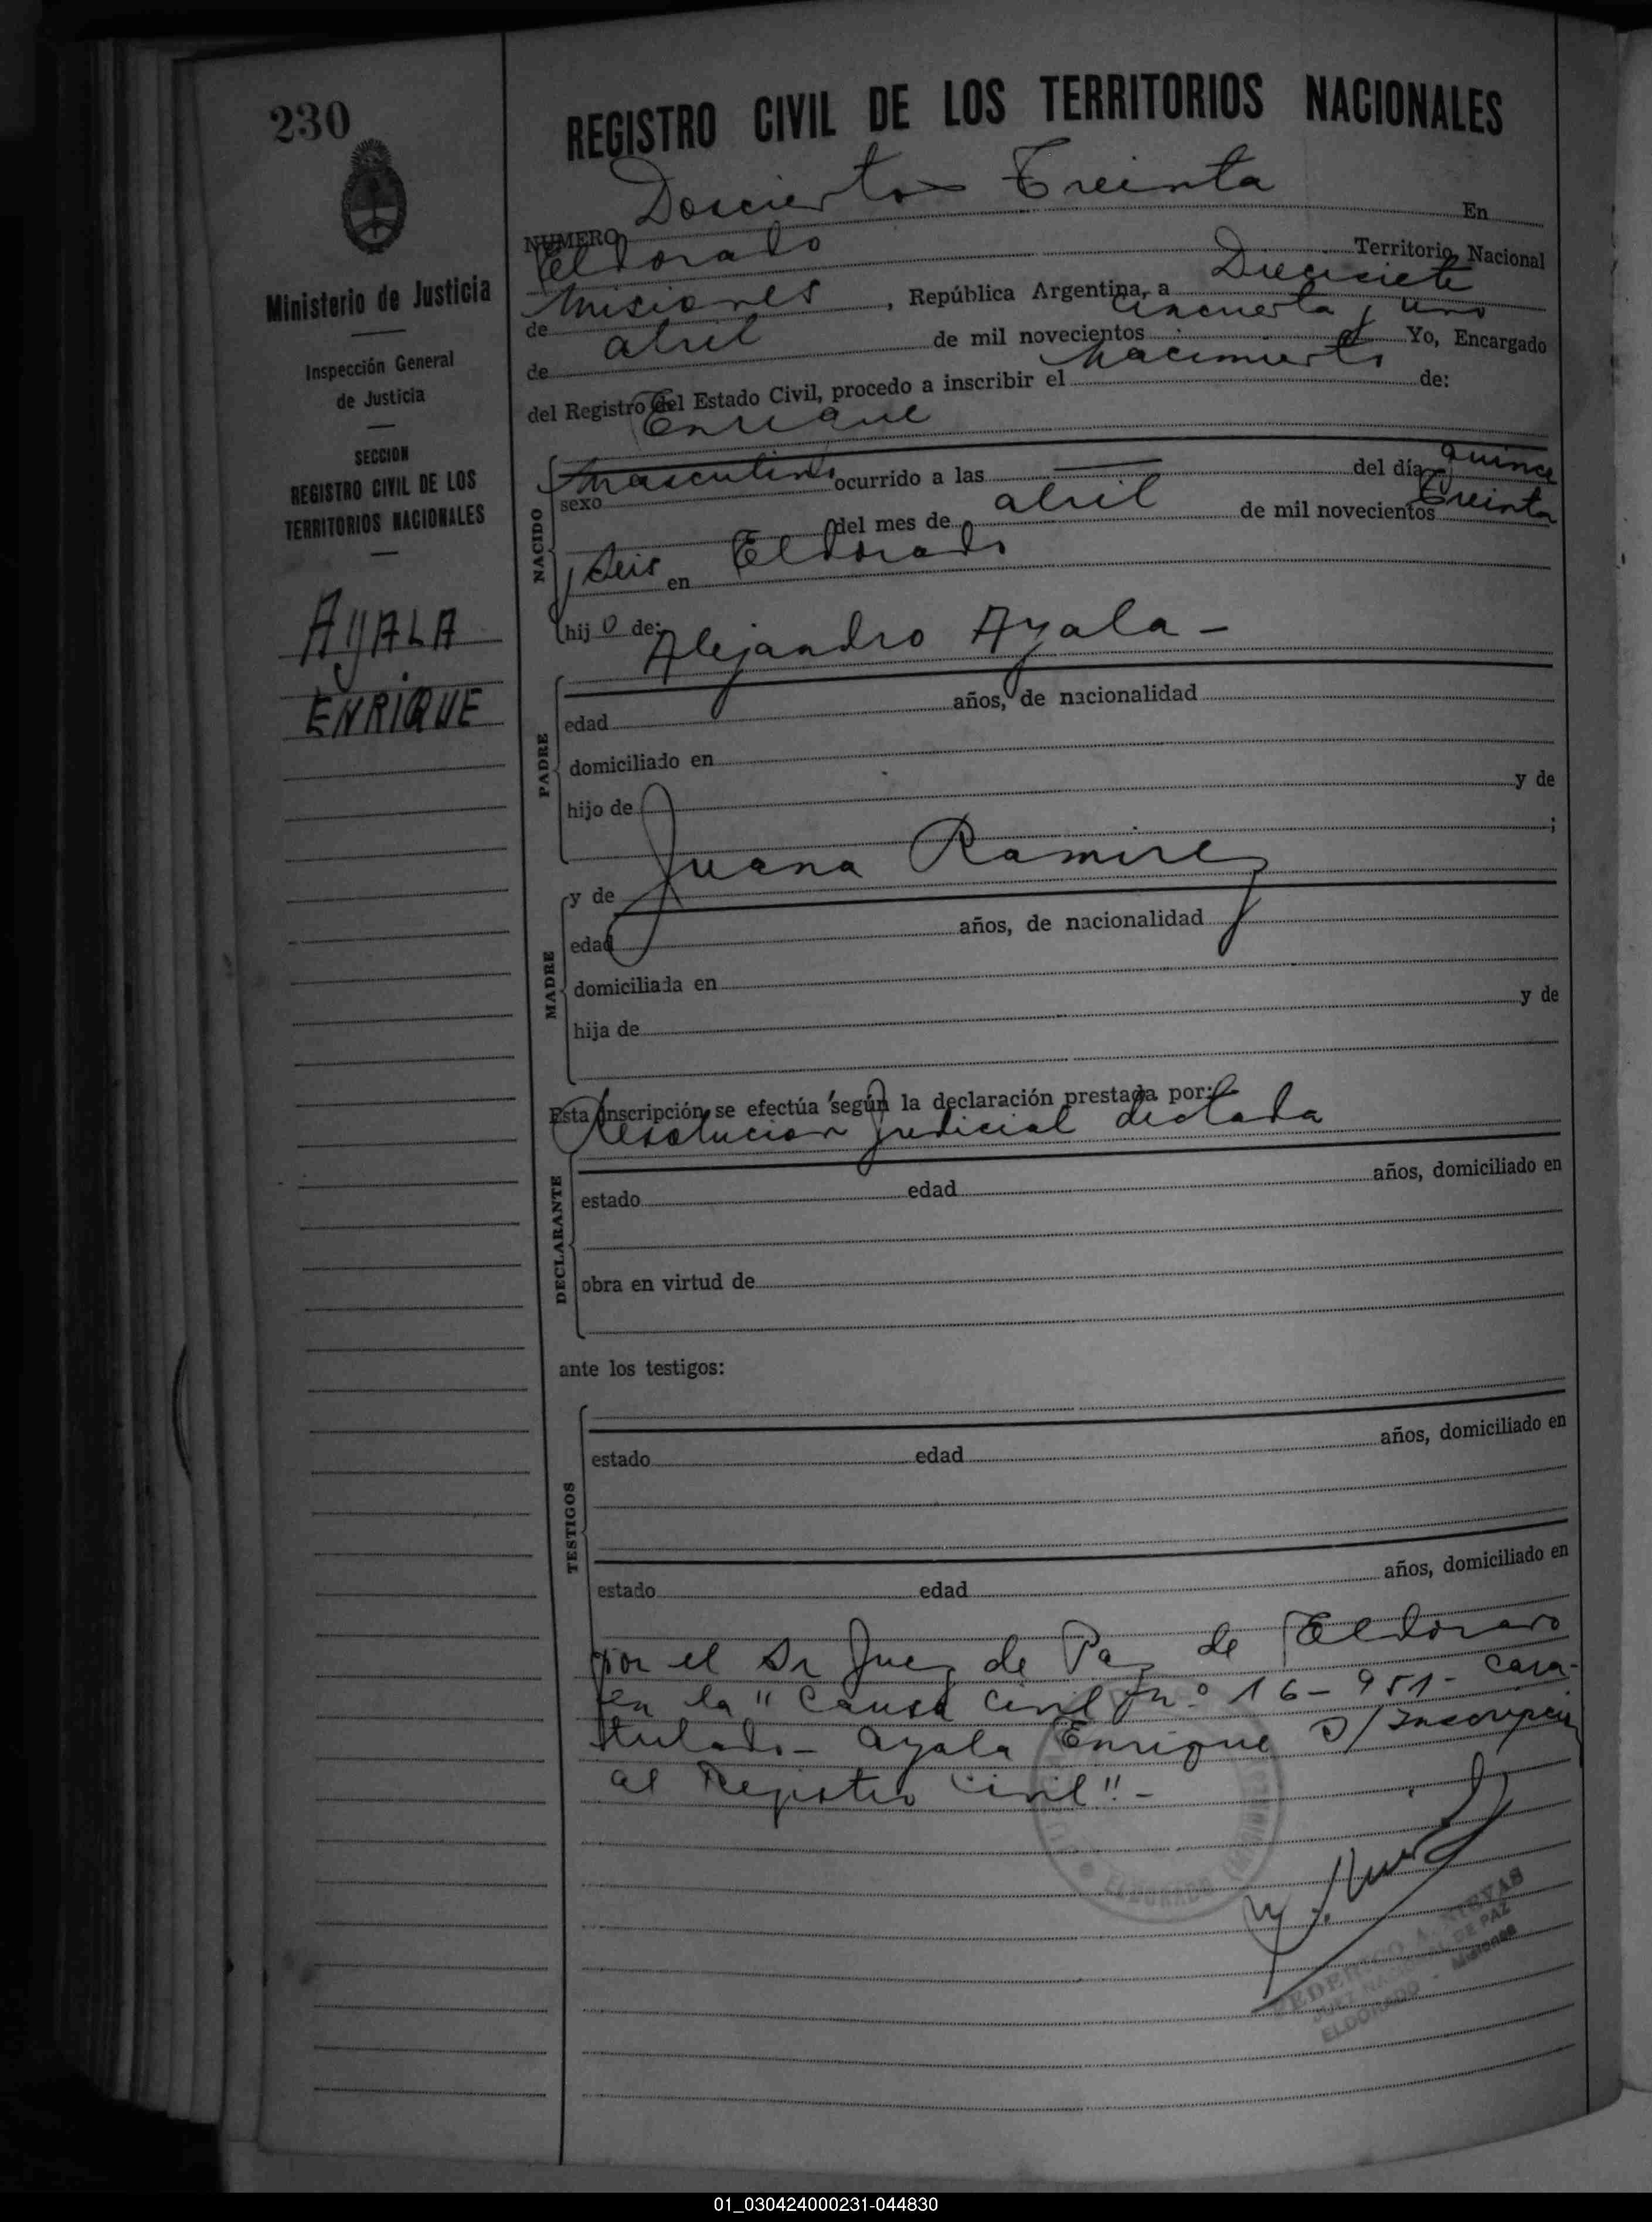 230
REGISTRO CIVIL DE LOS TERRITORIOS NACIONALES
Ministerio de Justicia
Inspección General
de Justicia
SECCION
REGISTRO CIVIL DE LOS
TERRITORIOS NACIONALES
AYALA
ENRIQUE
NUMERO Doscientos Treinta En
Eldorado Territorio Nacional
de Misiones, República Argentina, a Diecisiete
de abril de mil novecientos cincuenta y uno Yo, Encargado
del Registro del Estado Civil, procedo a inscribir el nacimiento de:
Enrique
NACIDO
sexo masculino ocurrido a las — del día quince
del mes de abril de mil novecientos treinta
y seis en Eldorado
hij o de:
Alejandro Ayala -
PADRE
edad años, de nacionalidad
domiciliado en
hijo de y de
;
y de Juana Ramirez
MADRE
edad años, de nacionalidad
domiciliada en
hija de y de
Esta inscripción se efectúa según la declaración prestada por:
Resolucion judicial dictada
DECLARANTE
estado edad años, domiciliado en
obra en virtud de
ante los testigos:
TESTIGOS
estado edad años, domiciliado en
estado edad años, domiciliado en
por el Sr Juez de Paz de Eldorado
en la "Causa civil nº 16-951- cara-
tulado- Ayala Enrique s/ Inscripción
al Registro Civil".-
FEDERICO A. NIEVAS
JUEZ NACIONAL DE PAZ
ELDORADO - Misiones
01_030424000231-044830